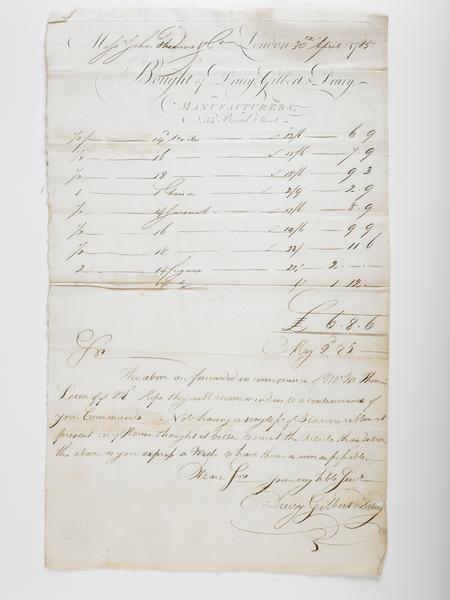 Mess.rs John Thomas & Co London 30th April 1785
Bought of Drury Gilbert & Drury
MANUFACTURERS,
No. 33 Bread Street
1/2 p 14d 13/6 6 9
1/2 16 15/6 7 9
1/2 18 18/6 9 3
1 China 2/9 2 9
1/2 14 17/6 8 9
1/2 16 19/6 9 9
1/2 18 23/ 11 6
2 14 figure 20/ 2
1 12
£ 6.8.6
May 9th 85
Sir
The above are forwarded in consequence of Mr. Wm. Thomas's
Letter of ye 28th Hope they will recommend us to a continuance of
your Commands Not having a single ps of at
present in ye House thought it better to omit the Article than delay
the above, as you express a Wish to have them as soon as possible
We are Sirs your very hble Servts
Drury Gilbert & Drury